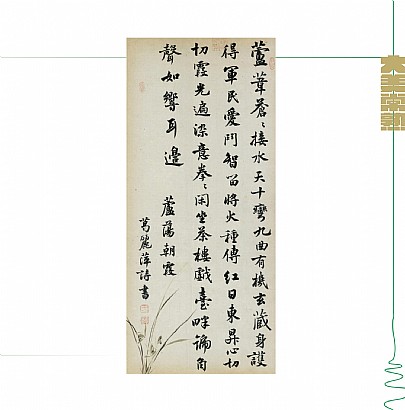 蘆葦蒼〻接水天十彎九曲有機玄藏身護
得軍民愛鬥智留將火種傳紅日東昇心切
切霞光遍染意拳〻閑坐茶樓戲臺畔角
聲如響耳邊 蘆蕩朝霞
葛麗萍詩書
大美常熟